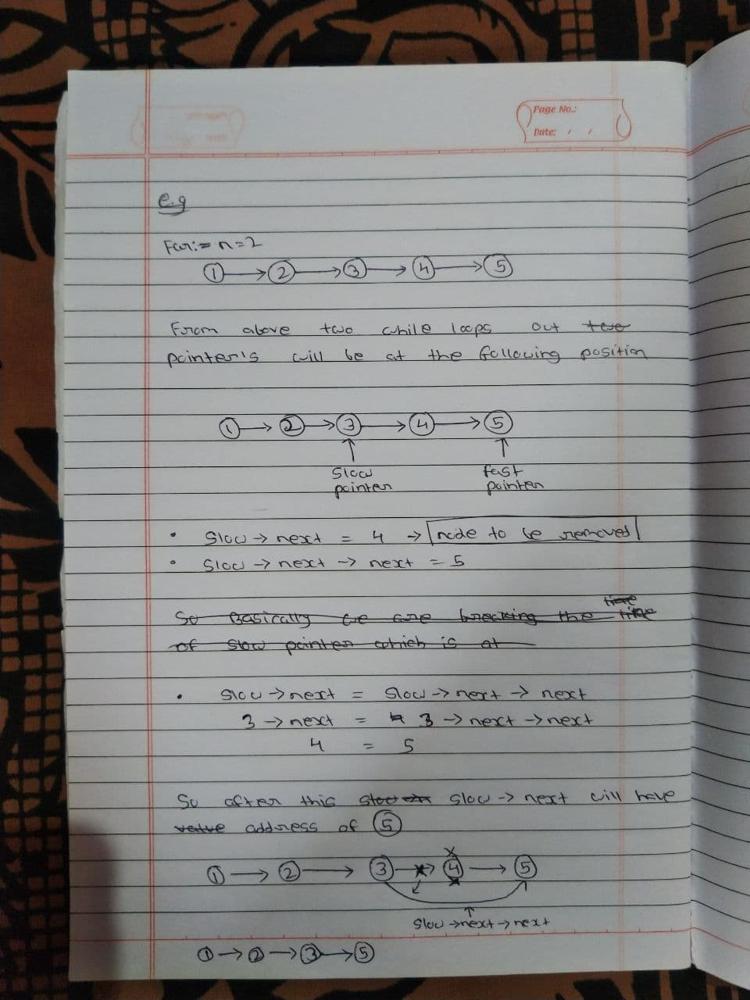 Page No.:
Date: / /
e.g
For:- n=2
1 → 2 → 3 → 4 → 5
From above two while loops out two
pointer's will be at the following position
1 → 2 → 3 → 4 → 5
Slow pointer
fast pointer
• Slow → next = 4 → node to be removed
• Slow → next → next = 5
So Basically we are breaking the
of slow pointer which is at
• Slow → next = Slow → next → next
3 → next = 3 → next → next
4 = 5
So after this slow → next will have
value address of 5
1 → 2 → 3 → 4 → 5
Slow → next → next
1 → 2 → 3 → 5